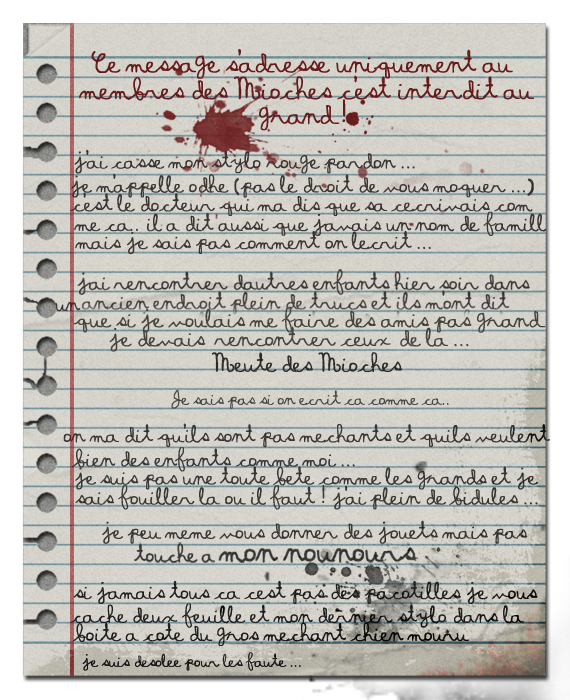 Ce message s'adresse uniquement au
membres des Mioches c'est interdit au
grand!
j'ai casse mon stylo rouge pardon ...
je m'appelle odhe (pas le droit de vous moquer ...)
c'est le docteur qui ma dis que sa cecrivais com
me ca.. il a dit aussi que javais un nom de famill
mais je sais pas comment on lecrit ...
jai rencontrer dautres enfants hier soir dans
un ancien endroit plein de trucs et ils m'ont dit
que si je voulais me faire des amis pas grand
je devais rencontrer ceux de la ...
Meute des Mioches
Je sais pas si on ecrit ca comme ca..
on ma dit quils sont pas mechants et quils veulent
bien des enfants comme moi ...
je suis pas une toute bete comme les grands et je
sais fouiller la ou il faut ! j'ai plein de bidules ...
je peu meme vous donner des jouets mais pas
touche a mon nounours
si jamais tous ca cest pas des pacotilles je vous
cache deux feuille et mon dernier stylo dans la
boite a cote du gros mechant chien mouru
je suis desolee pour les faute ...